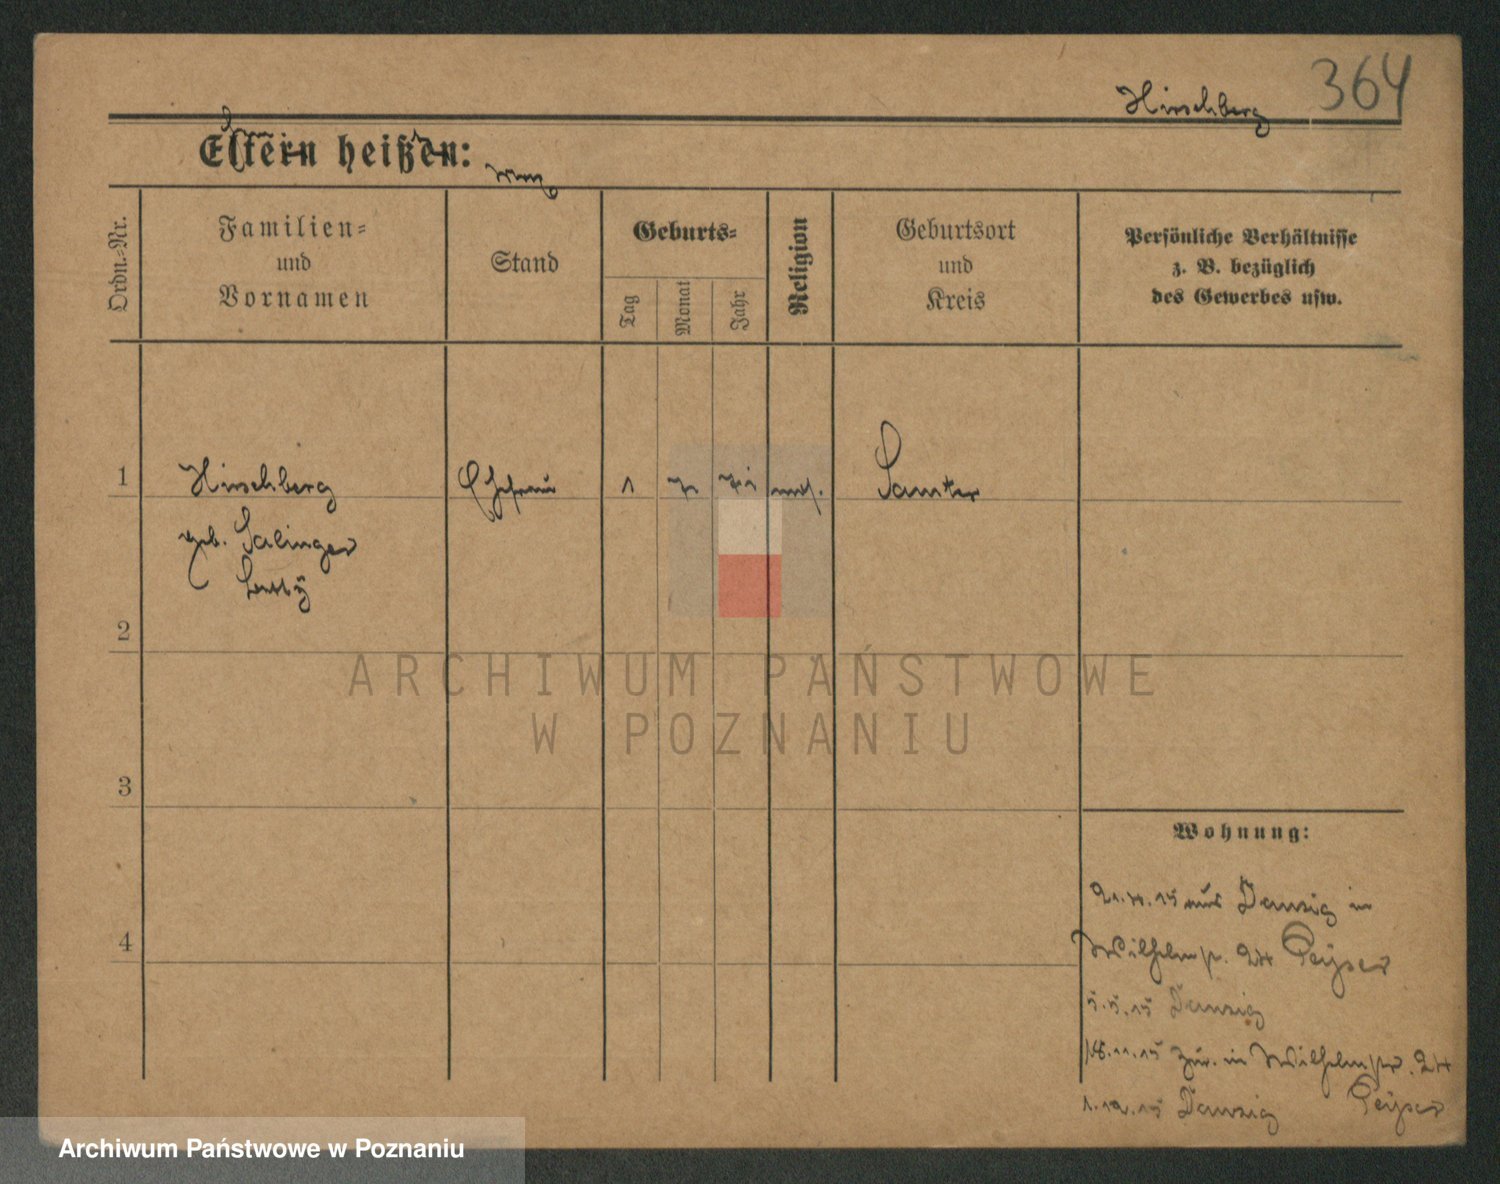 364
Hirschberg
Eltern heißen:
Ordn.-Nr.
Familien-
und
Vornamen
Stand
Geburts-
Tag
Monat
Jahr
Religion
Geburtsort
und
Kreis
Persönliche Verhältnisse
z. B. bezüglich
des Gewerbes usw.
1 Hirschberg Ehefrau 1 Samter
geb. Salinger
2
ARCHIWUM PAŃSTWOWE
W POZNANIU
3
Wohnung:
21.4.15 aus Danzig in
4
Wilhelmstr. 24 Peyser
5.5.15 Danzig
18.11.15 zur. in Wilhelmstr. 24
1.12.15 Danzig Peyser
Archiwum Państwowe w Poznaniu